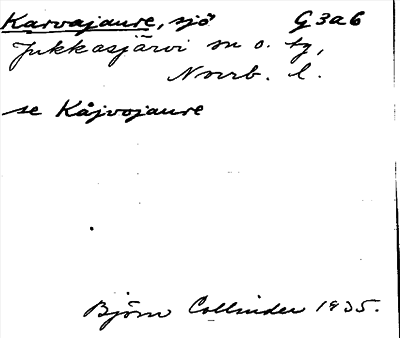 Karvajaure, sjö G3a6
Jukkasjärvi sn o. tg,
Norrb. l.
se Kåjvojaure
Björn Collinder 1935.